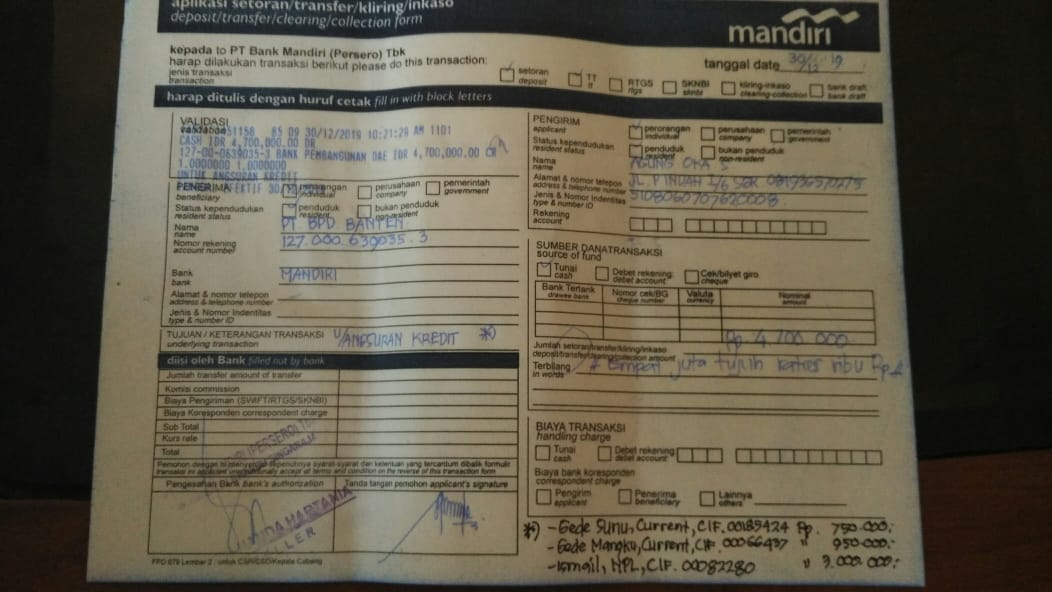 aplikasi setoran/transfer/kliring/inkaso
deposit/transfer/clearing/collection form
mandiri
kepada to PT Bank Mandiri (Persero) Tbk
harap dilakukan transaksi berikut please do this transaction:
tanggal date 30/12 19
jenis transaksi
transaction
setoran
deposit
TT
tt
RTGS
rtgs
SKNBI
sknbi
kliring-inkaso
clearing-collection
bank draft
bank draft
harap ditulis dengan huruf cetak fill in with block letters
VALIDASI
validation
51158 85 09 30/12/2019 10:21:29 AM 1101
CASH IDR 4,700,000.00 DR
127-00-0639035-3 BANK PEMBANGUNAN DAE IDR 4,700,000.00 CR
1.0000000 1.0000000
UNTUK ANGSURAN KREDIT
PENERIMA
beneficiary
perorangan
individual
perusahaan
company
pemerintah
government
Status kependudukan
resident status
penduduk
resident
bukan penduduk
non-resident
Nama
name
PT. BPD BANTEN
Nomor rekening
account number
127.000.639035.3
Bank
bank
MANDIRI
Alamat & nomor telepon
address & telephone number
Jenis & Nomor Indentitas
type & number ID
TUJUAN / KETERANGAN TRANSAKSI
underlying transaction
U/ANGSURAN KREDIT *)
diisi oleh Bank filled out by bank
Jumlah transfer amount of transfer
Komisi commission
Biaya Pengiriman (SWIFT/RTGS/SKNBI)
Biaya Koresponden correspondent charge
Sub Total
Kurs rate
Total
Pengesahan Bank bank's authorization
Tanda tangan pemohon applicant's signature
HARTANIA
TELLER
PENGIRIM
applicant
perorangan
individual
perusahaan
company
pemerintah
government
Status kependudukan
resident status
penduduk
resident
bukan penduduk
non-resident
Nama
name
AGUNG OKA S
Alamat & nomor telepon
address & telephone number
JL. PINDAH I/6 SGR
Jenis & Nomor Indentitas
type & number ID
Rekening
account
SUMBER DANATRANSAKSI
source of fund
Tunai
cash
Debet rekening
debet account
Cek/bilyet giro
cheque
Bank Tertarik
drawee bank
Nomor cek/BG
cheque number
Valuta
currency
Nominal
amount
Rp. 4.700.000
Jumlah setoran/transfer/kliring/inkaso
deposit/transfer/clearing/collection amount
Terbilang
in words
# Empat juta tujuh ratus ribu Rp #
BIAYA TRANSAKSI
handling charge
Tunai
cash
Debet rekening
debet account
Biaya bank koresponden
correspondent charge
Pengirim
applicant
Penerima
beneficiary
Lainnya
others
*) - Gede Sunu, Current, CIF. 00185424 Rp. 750.000;
- Gede Mangku, Current, CIF 00066437 " 950.000;
- Ismail, NPL, CIF. 00082280 " 3.000.000;